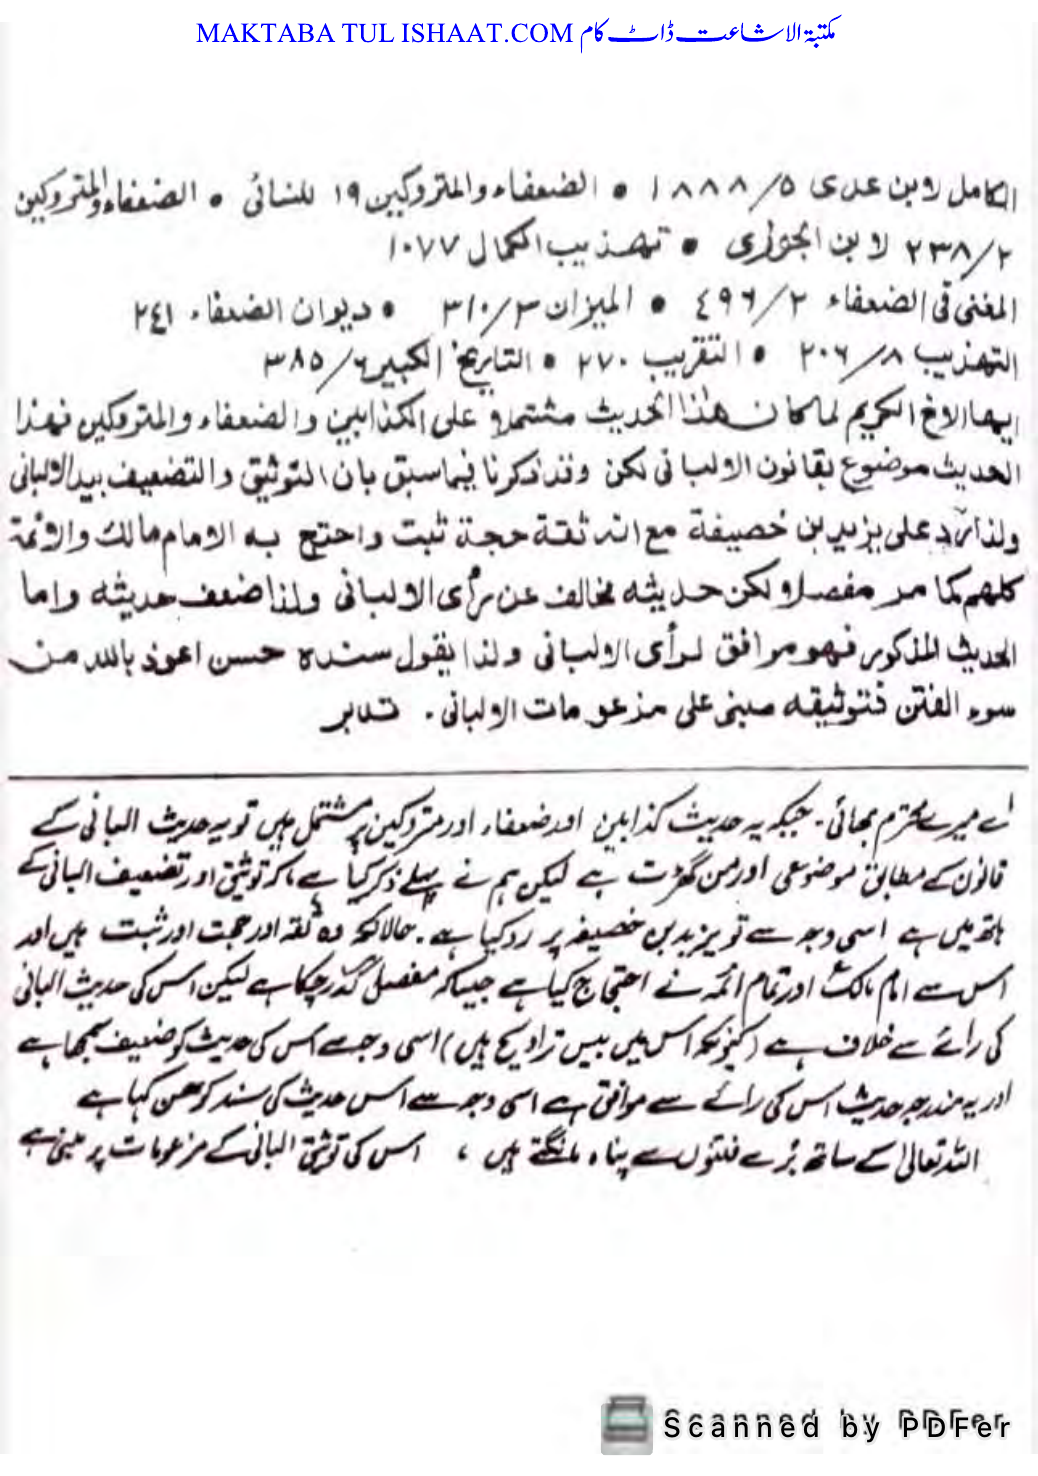 MAKTABA TUL ISHAAT.COM مکتبۃ الاشاعت ڈاٹ کام
الكامل لابن عدى ٥/١٨٨٨ • الضعفاء والمتروكين ١٩ للنسائى • الضعفاء والمتروكين
٢/٢٣٨ لابن الجوزى • تهذيب الكمال ١٠٧٧
المغنى فى الضعفاء ٢/٤٩٦ • الميزان ٣/٣١٠ • ديوان الضعفاء ٢٤١
التهذيب ٨/٢٠٦ • التقريب ٢٧٠ • التاريخ الكبير ٦/٣٨٥
ايها الاخ الكريم لما كان هذا الحديث مشتملا على الكذابين والضعفاء والمتروكين فهذا
الحديث موضوع بقانون الالبانى لكن وقد ذكرنا فيما سبق بان التوثيق والتضعيف بيد الالبانى
ولذا رد على يزيد بن خصيفة مع انه ثقة حجة ثبت واحتج به الامام مالك والائمة
كلهم كما مر مفصلا ولكن حديثه مخالف عن رأى الالبانى ولذا ضعف حديثه واما
الحديث المذكور فهو موافق لرأى الالبانى ولذا يقول سنده حسن اعوذ بالله من
سوء الفتن فتوثيقه مبنى على مزعومات الالبانى . تدبر
اے میرے محترم بھائی۔ جبکہ یہ حدیث کذابین اور ضعفاء اور متروکین پر مشتمل ہیں تو یہ حدیث البانی کے
قانون کے مطابق موضوعی اور من گھڑت ہے لیکن ہم نے پہلے ذکر کیا ہے کہ توثیق اور تضعیف البانی کے
ہاتھ میں ہے اسی وجہ سے تو یزید بن خصیفہ پر رد کیا ہے۔ حالانکہ وہ ثقہ اور حجت اور ثبت ہیں اور
اس سے امام مالکؒ اور تمام ائمہ نے احتجاج کیا ہے جیسا کہ مفصل گذر چکا ہے لیکن اس کی حدیث البانی
کی رائے سے خلاف ہے (کیونکہ اس میں بیس تراویح ہیں) اسی وجہ سے اس کی حدیث کو ضعیف سمجھا ہے
اور یہ مندرجہ حدیث اس کی رائے سے موافق ہے اسی وجہ سے اس حدیث کی سند کو حسن کہا ہے
اللہ تعالیٰ کے ساتھ بُرے فتنوں سے پناہ مانگتے ہیں ، اس کی توثیق البانی کے مزعومات پر مبنی ہے
Scanned by PDFer